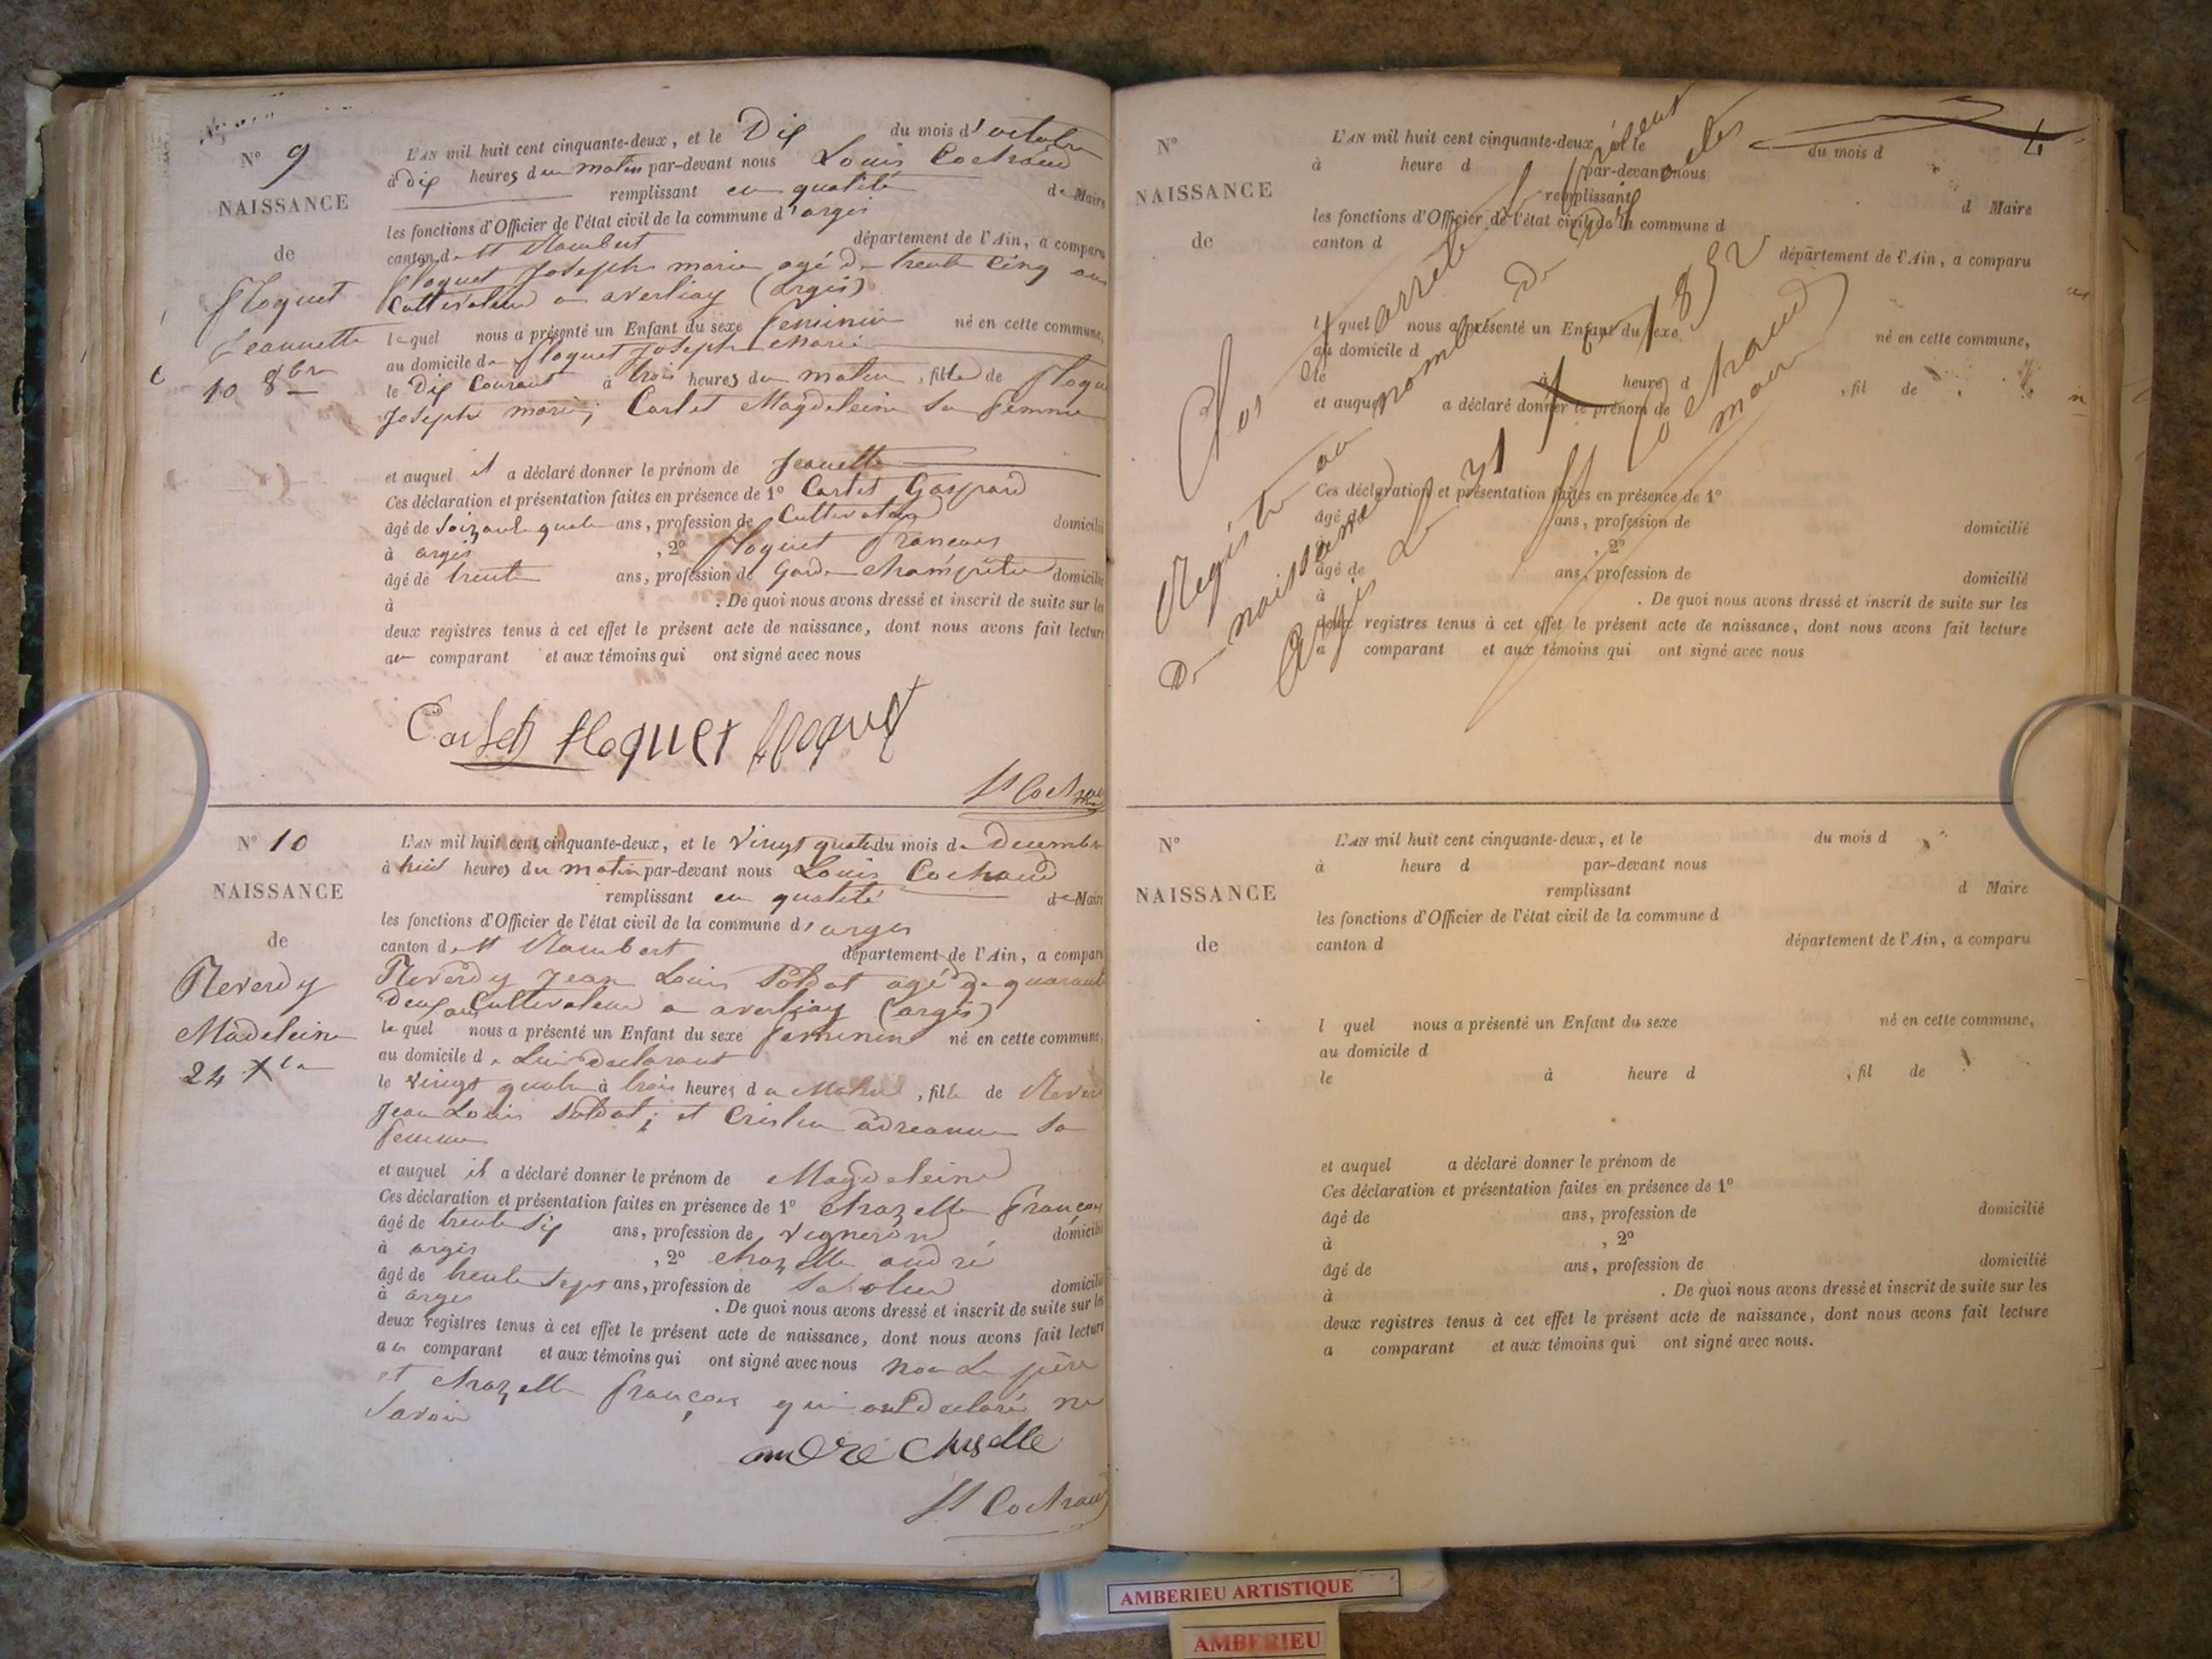 N° 9
NAISSANCE
de
floquet
Jeannette
10 8bre
L'AN mil huit cent cinquante-deux, et le Dix du mois d'octobre
à dix heures du matin par-devant nous Louis Cochaud
remplissant en qualité de Maire
les fonctions d'Officier de l'état civil de la commune d'argis
canton de st Rambert département de l'Ain, a comparu
floquet Joseph marie agé de trente cinq ans
Cultivateur a averliay (argis)
lequel nous a présenté un Enfant du sexe feminin né en cette commune,
au domicile de floquet Joseph Marie
le Dix Courant à trois heures du matin, fille de floquet
Joseph marie; Carlet Magdeleine sa femme
et auquel il a déclaré donner le prénom de Jeanette
Ces déclaration et présentation faites en présence de 1° Carlet Gaspard
âgé de soixante quatre ans, profession de Cultivateur domicilié
à argis, 2° floquet francois
âgé de trente ans, profession de Garde champêtre domicilié
à . De quoi nous avons dressé et inscrit de suite sur les
deux registres tenus à cet effet le présent acte de naissance, dont nous avons fait lecture
au comparant et aux témoins qui ont signé avec nous
Carlet floquet floquet
Cochaud
N° 10
NAISSANCE
de
Reverdy
Madeleine
24 Xbre
L'AN mil huit cent cinquante-deux, et le vingt quatre du mois de Decembre
à huit heures du matin par-devant nous Louis Cochaud
remplissant en qualité de Maire
les fonctions d'Officier de l'état civil de la commune d'argis
canton de st Rambert département de l'Ain, a comparu
Reverdy Jean Louis Soldat agé de quarante
Deux ans Cultivateur a averliay (argis)
lequel nous a présenté un Enfant du sexe feminin né en cette commune,
au domicile de lui declarant
le vingt quatre à trois heures du Matin, fille de Reverdy
Jean Louis Soldat; et Cristin adreanne sa
femme
et auquel il a déclaré donner le prénom de Magdeleine
Ces déclaration et présentation faites en présence de 1° chazelle françois
âgé de trente six ans, profession de vigneron domicilié
à argis, 2° chazelle andré
âgé de trente sept ans, profession de domicilié
à argis . De quoi nous avons dressé et inscrit de suite sur les
deux registres tenus à cet effet le présent acte de naissance, dont nous avons fait lecture
au comparant et aux témoins qui ont signé avec nous non le père
et chazelle françois qui ont declaré ne
savoir
andré chaselle
Cochaud
4
N°
NAISSANCE
de
L'AN mil huit cent cinquante-deux, et le du mois d
à heure d par-devant nous
remplissant d Maire
les fonctions d'Officier de l'état civil de la commune d
canton d département de l'Ain, a comparu
l quel nous a présenté un Enfant du sexe né en cette commune,
au domicile d
le à heure d , fil de
et auquel a déclaré donner le prénom de
Ces déclaration et présentation faites en présence de 1°
âgé de ans, profession de domicilié
à , 2°
âgé de ans, profession de domicilié
à . De quoi nous avons dressé et inscrit de suite sur les
deux registres tenus à cet effet le présent acte de naissance, dont nous avons fait lecture
a comparant et aux témoins qui ont signé avec nous
Clos et arrêté le présent
Registre au nombre de dix actes
De naissance
Argis le 31 1852
Cochaud
maire
N°
NAISSANCE
de
L'AN mil huit cent cinquante-deux, et le du mois d
à heure d par-devant nous
remplissant d Maire
les fonctions d'Officier de l'état civil de la commune d
canton d département de l'Ain, a comparu
l quel nous a présenté un Enfant du sexe né en cette commune,
au domicile d
le à heure d , fil de
et auquel a déclaré donner le prénom de
Ces déclaration et présentation faites en présence de 1°
âgé de ans, profession de domicilié
à , 2°
âgé de ans, profession de domicilié
à . De quoi nous avons dressé et inscrit de suite sur les
deux registres tenus à cet effet le présent acte de naissance, dont nous avons fait lecture
a comparant et aux témoins qui ont signé avec nous.
AMBERIEU ARTISTIQUE
AMBERIEU